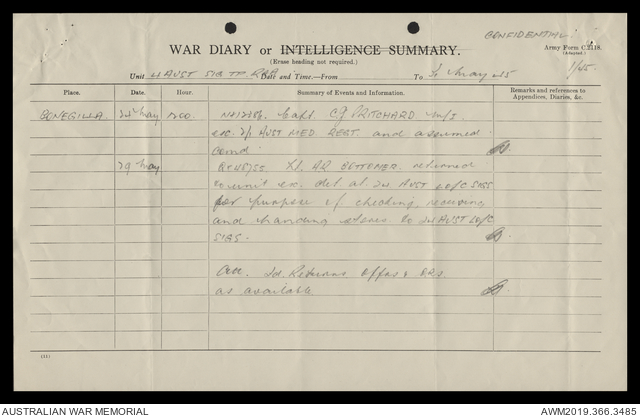 CONFIDENTIAL.
WAR DIARY or INTELLIGENCE SUMMARY.
(Erase heading not required.)
Army Form C.2118.
(Adapted.)
Unit 4 AUST SIG TP RAA Date and Time.—From To 31 May 45
1/45.
Place. Date. Hour. Summary of Events and Information. Remarks and references to Appendices, Diaries, &c.
BONEGILLA 24 May 1200. Capt C.J. PRITCHARD m/i
exc AUST MED. REGT. and assumed
comd
29 May Lt. returned
to unit ex. det at AUST L of C SIGS
for purpose of checking, receiving
and handing stores to AUST L of C
SIGS.
Returns Offrs & ORs.
as available
(21)
AUSTRALIAN WAR MEMORIAL
AWM2019.366.3485